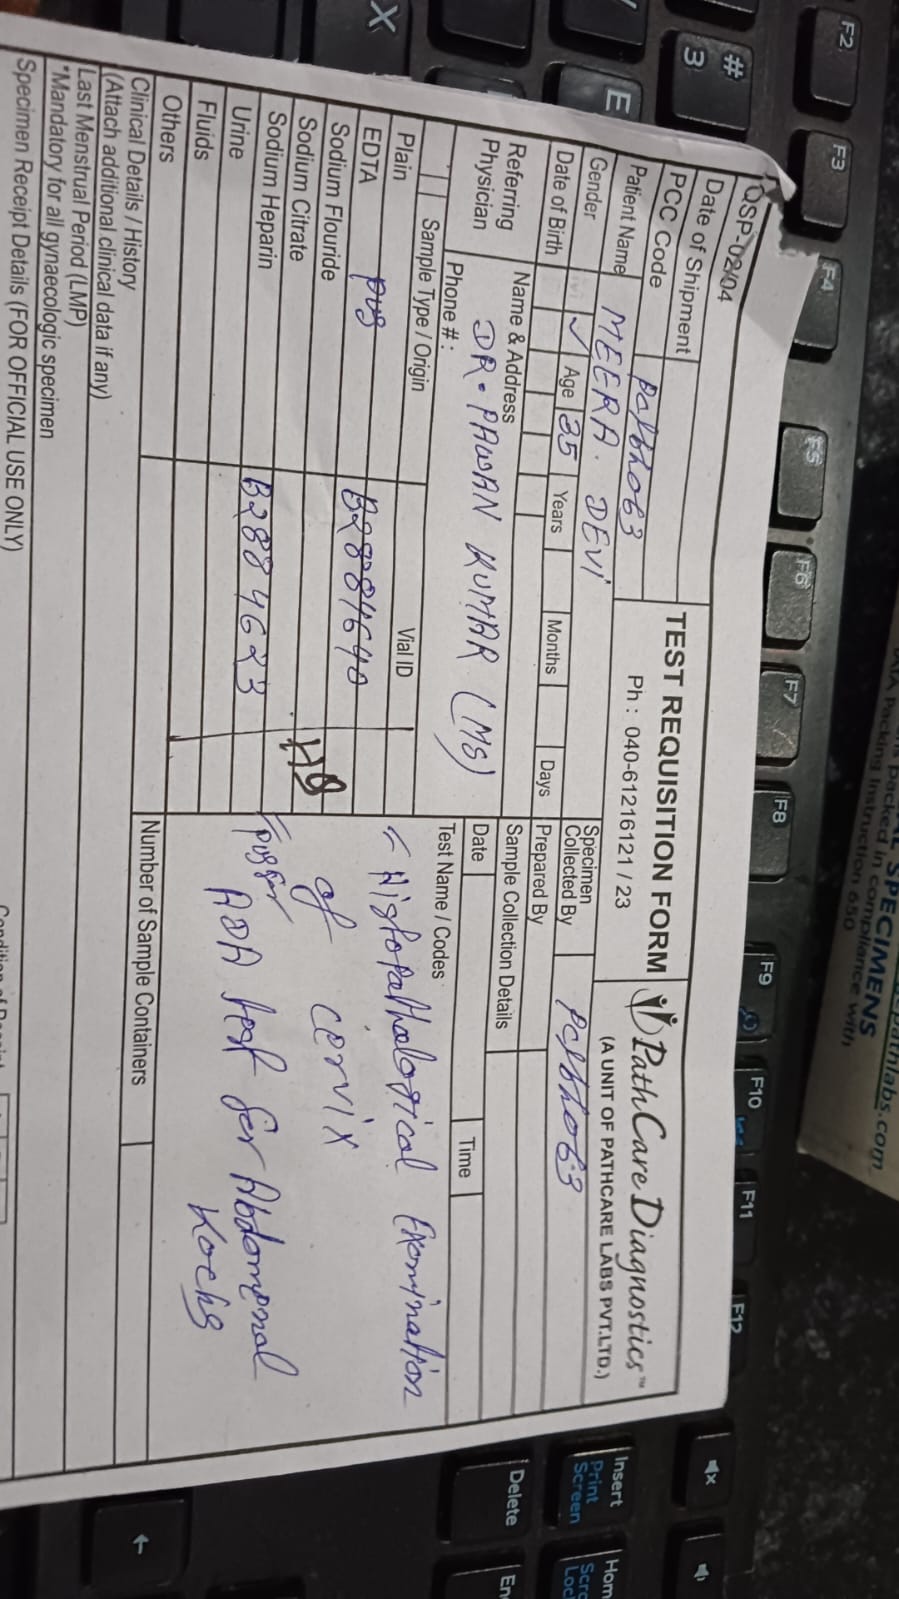 QSP-02/04
TEST REQUISITION FORM
PathCare Diagnostics™
(A UNIT OF PATHCARE LABS PVT.LTD.)
Date of Shipment
PCC Code
Ph : 040-61216121 / 23
Patient Name MEERA. DEVI
Gender ✓ Age 35 Years Months Days
Specimen Collected By
Date of Birth
Prepared By
Referring Physician
Name & Address
DR. PAWAN KUMAR (MS)
Phone # :
Sample Collection Details
Date Time
Sample Type / Origin Vial ID
Test Name / Codes
Plain
EDTA pus
Sodium Flouride
Sodium Citrate
Sodium Heparin
Urine B2884623
Fluids
Others
Histopathological Examination
of cervix
ADA test for Abdomenal
Kochs
Number of Sample Containers
Clinical Details / History
(Attach additional clinical data if any)
Last Menstrual Period (LMP)
*Mandatory for all gynaecologic specimen
Specimen Receipt Details (FOR OFFICIAL USE ONLY)
SPECIMENS
packed in compliance with
Packing Instruction 650
pathlabs.com
F2
F3
F4
F5
F6
F7
F8
F9
F10
F11
F12
#
3
E
X
Insert
Print
Screen
Delete